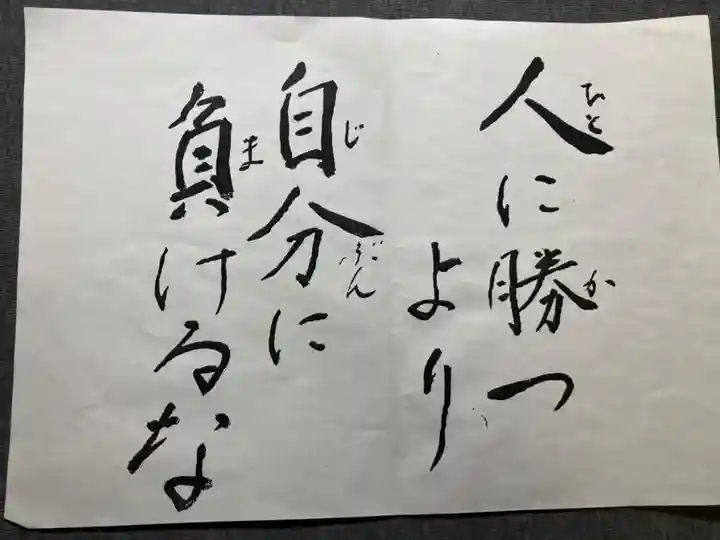 人に勝つ
ひと か
より
自分に
じ ぶん
負けるな
ま